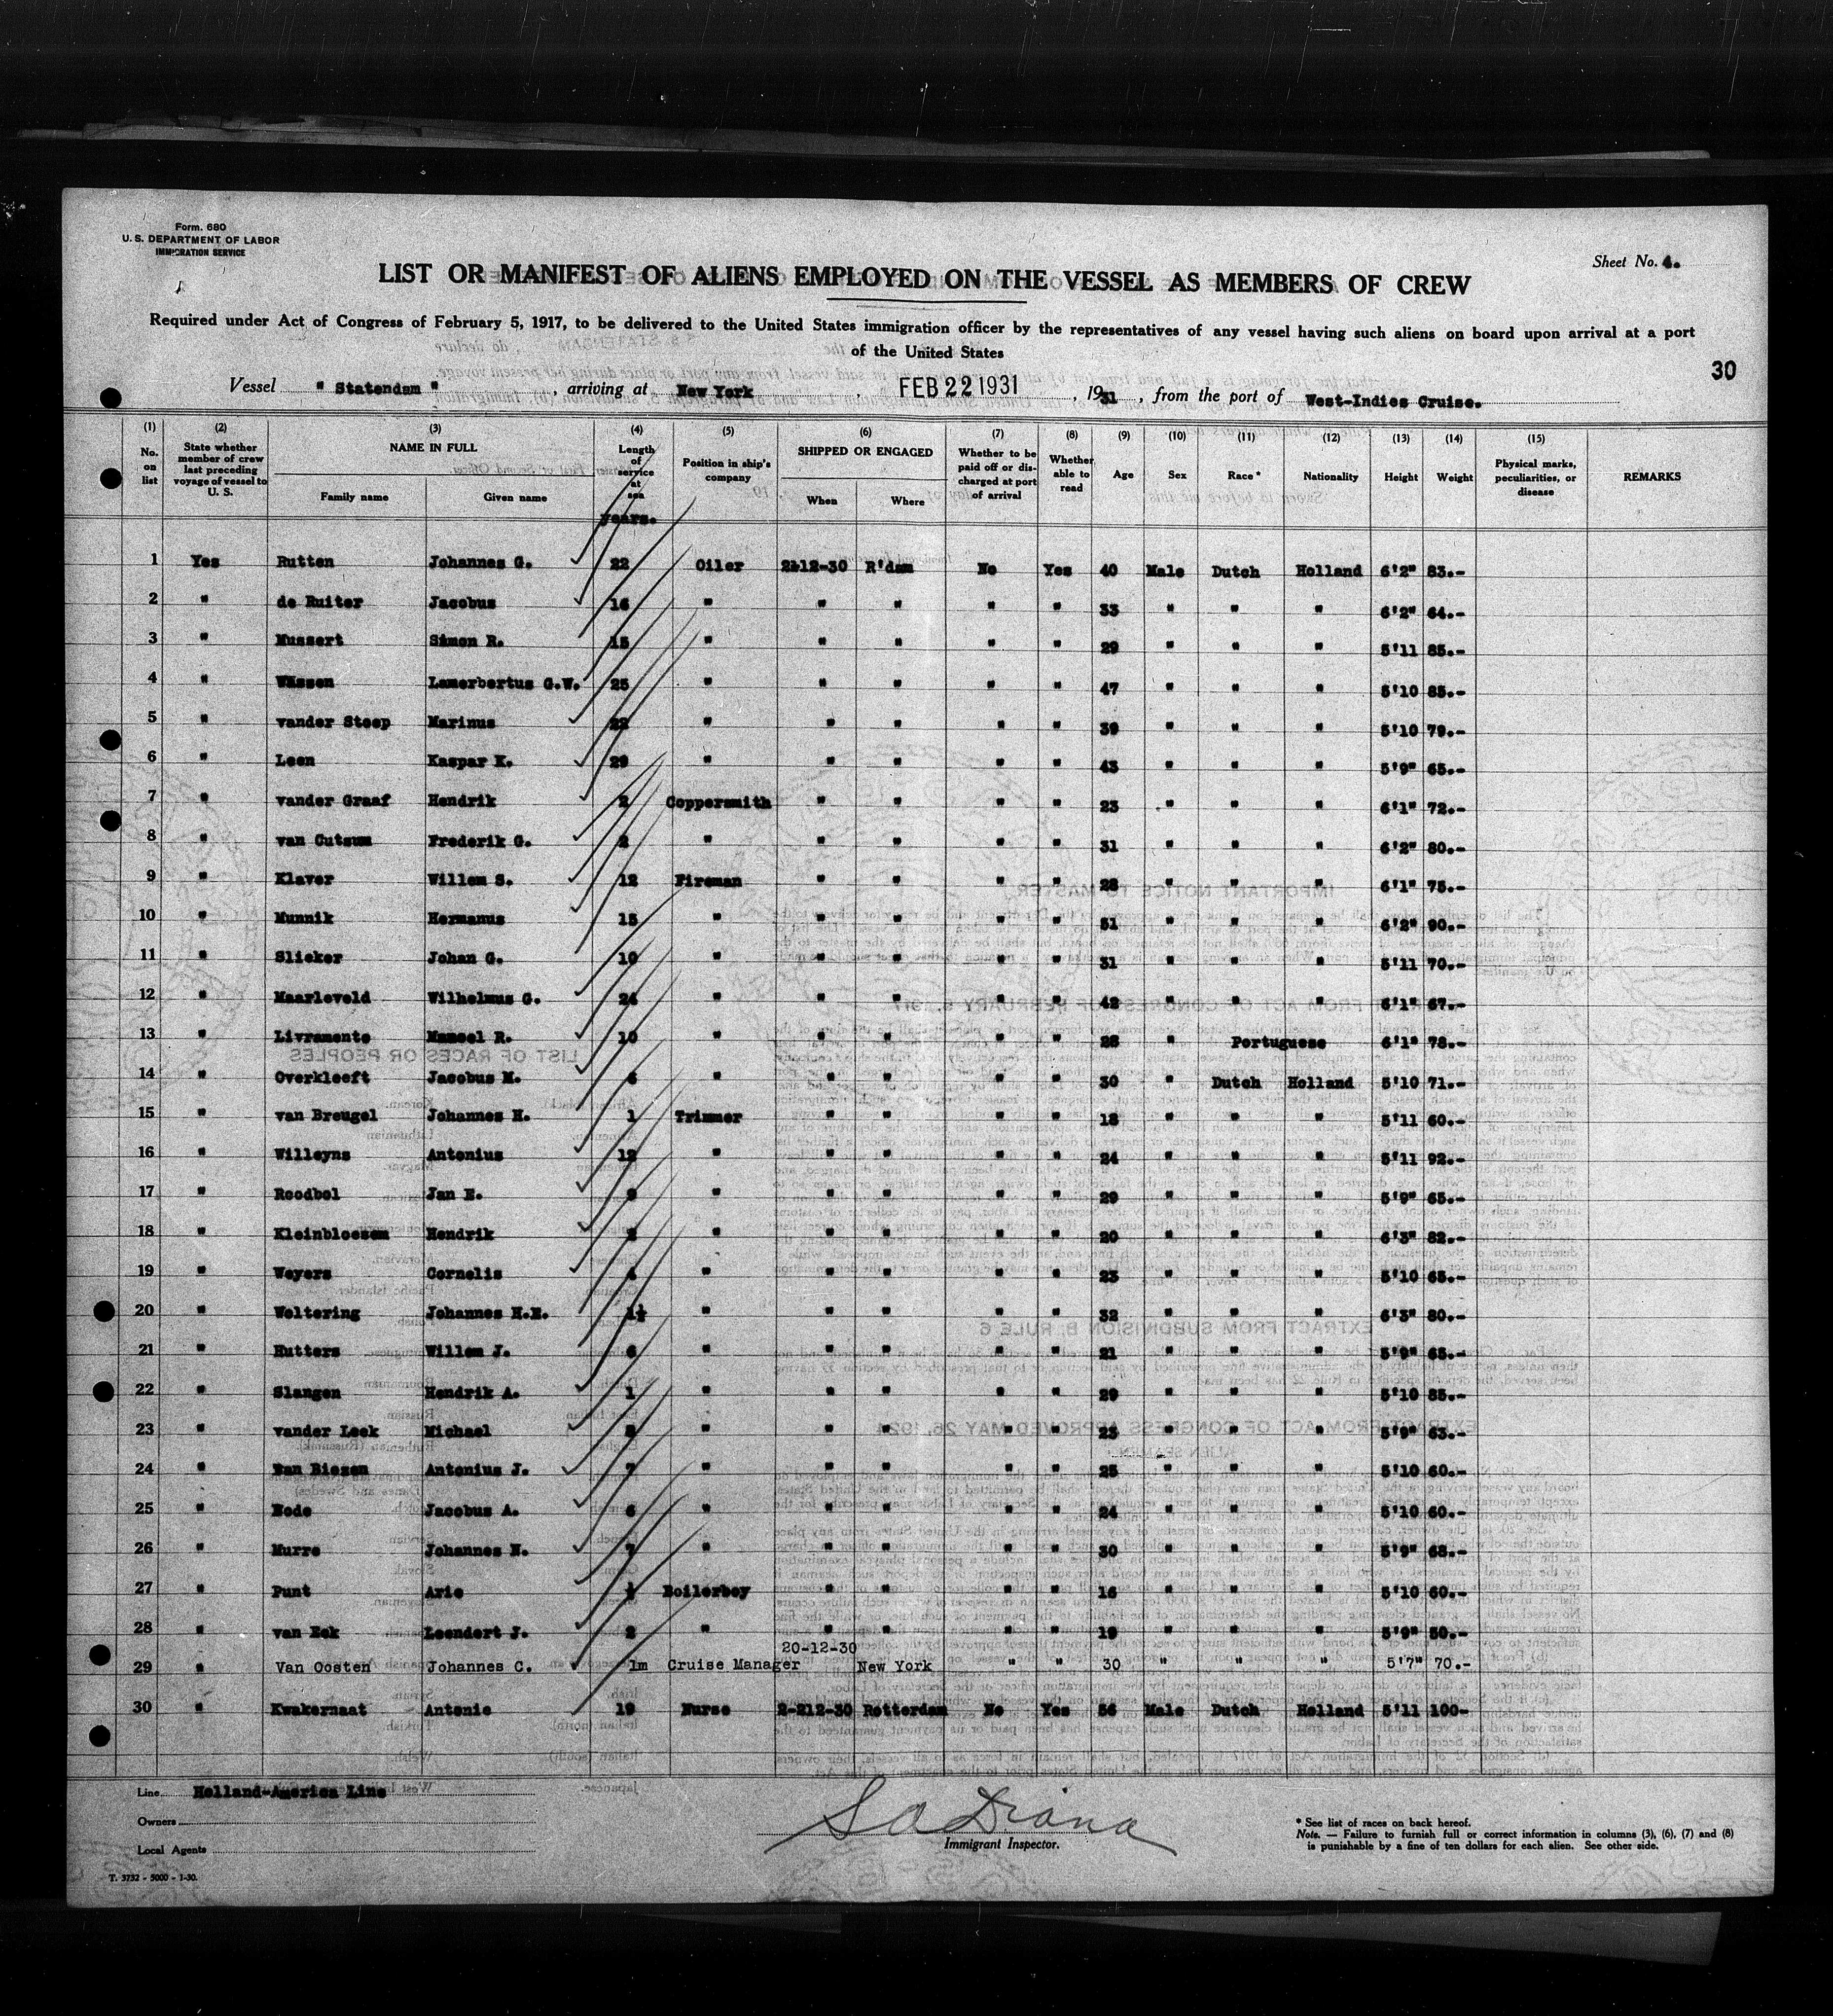 Form. 680
U. S. DEPARTMENT OF LABOR
IMMIGRATION SERVICE
Sheet No. 4.
LIST OR MANIFEST OF ALIENS EMPLOYED ON THE VESSEL AS MEMBERS OF CREW
Required under Act of Congress of February 5, 1917, to be delivered to the United States immigration officer by the representatives of any vessel having such aliens on board upon arrival at a port
of the United States
30
Vessel " Statendam " , arriving at New York , FEB 22 1931 , 1931 , from the port of West-Indies Cruise.
(1) (2) (3) (4) (5) (6) (7) (8) (9) (10) (11) (12) (13) (14) (15)
No. on list State whether member of crew last preceding voyage of vessel to U. S. NAME IN FULL Family name Given name Length of service at sea years. Position in ship's company SHIPPED OR ENGAGED When Where Whether to be paid off or discharged at port of arrival Whether able to read Age Sex Race* Nationality Height Weight Physical marks, peculiarities, or disease REMARKS
1 Yes Rutten Johannes G. 22 Oiler 2112-30 R'dam No Yes 40 Male Dutch Holland 6'2" 83.-
2 " de Ruiter Jacobus 16 " " " " " 33 " " " 6'2" 64.-
3 " Mussert Simon R. 15 " " " " " 29 " " " 5'11 85.-
4 " Lamerbertus G.W. 25 " " " " " 47 " " " 5'10 85.-
5 " vander Steep Marinus 22 " " " " " 39 " " " 5'10 79.-
6 " Leen Kaspar K. 29 " " " " " 43 " " " 5'9" 65.-
7 " vander Graaf Hendrik 2 Coppersmith " " " " 23 " " " 6'1" 72.-
8 " van Cutsum Frederik G. 2 " " " " " 31 " " " 6'2" 80.-
9 " Klaver Willem S. 12 Fireman " " " " 28 " " " 6'1" 75.-
10 " Munnik Hermanus 15 " " " " " 31 " " " 6'2" 90.-
11 " Slieker Johan G. 10 " " " " " 31 " " " 5'11 70.-
12 " Maarleveld Wilhelmus G. 24 " " " " " 42 " " " 6'1" 67.-
13 " Livramento Manoel R. 10 " " " " " 28 " Portuguese 6'1" 78.-
14 " Overkleeft Jacobus M. " " " " " 30 " Dutch Holland 5'10 71.-
15 " van Breugel Johannes H. 1 Trimmer " " " " 18 " " " 5'11 60.-
16 " Willeyns Antonius 12 " " " " " 24 " " " 5'11 92.-
17 " Roodbol Jan E. 9 " " " " " 29 " " " 5'9" 65.-
18 " Kleinbloesem Hendrik " " " " " 20 " " " 6'3" 82.-
19 " Weyers Cornelis 4 " " " " " 23 " " " 5'10 65.-
20 " Woltering Johannes H.E. 1½ " " " " " 32 " " " 6'3" 80.-
21 " Rutters Willem J. 6 " " " " " 21 " " " 5'9" 65.-
22 " Slangen Hendrik A. 1 " " " " " 29 " " " 5'10 85.-
23 " vander Leek Michael " " " " " 23 " " " 5'9" 63.-
24 " van Biezen Antonius J. 7 " " " " " 25 " " " 5'10 60.-
25 " Node Jacobus A. 6 " " " " " 24 " " " 5'10 60.-
26 " Murre Johannes N. 7 " " " " " 30 " " " 5'9" 68.-
27 " Punt Arie ½ Boilerboy " " " " 16 " " " 5'10 60.-
28 " van Eck Leendert J. 2 " " " " " 19 " " " 5'9" 50.-
29 " Van Oosten Johannes C. 1m Cruise Manager 20-12-30 New York " " 30 " " " 5'7" 70.-
30 " Kwakernaat Antonie 19 Nurse 2-212-30 Rotterdam No Yes 56 Male Dutch Holland 5'11 100-
Line Holland-America Line
Owners
Local Agents
T. 3732 - 5000 - 1-30.
S A Diana
Immigrant Inspector.
* See list of races on back hereof.
Note. — Failure to furnish full or correct information in columns (3), (6), (7) and (8)
is punishable by a fine of ten dollars for each alien. See other side.